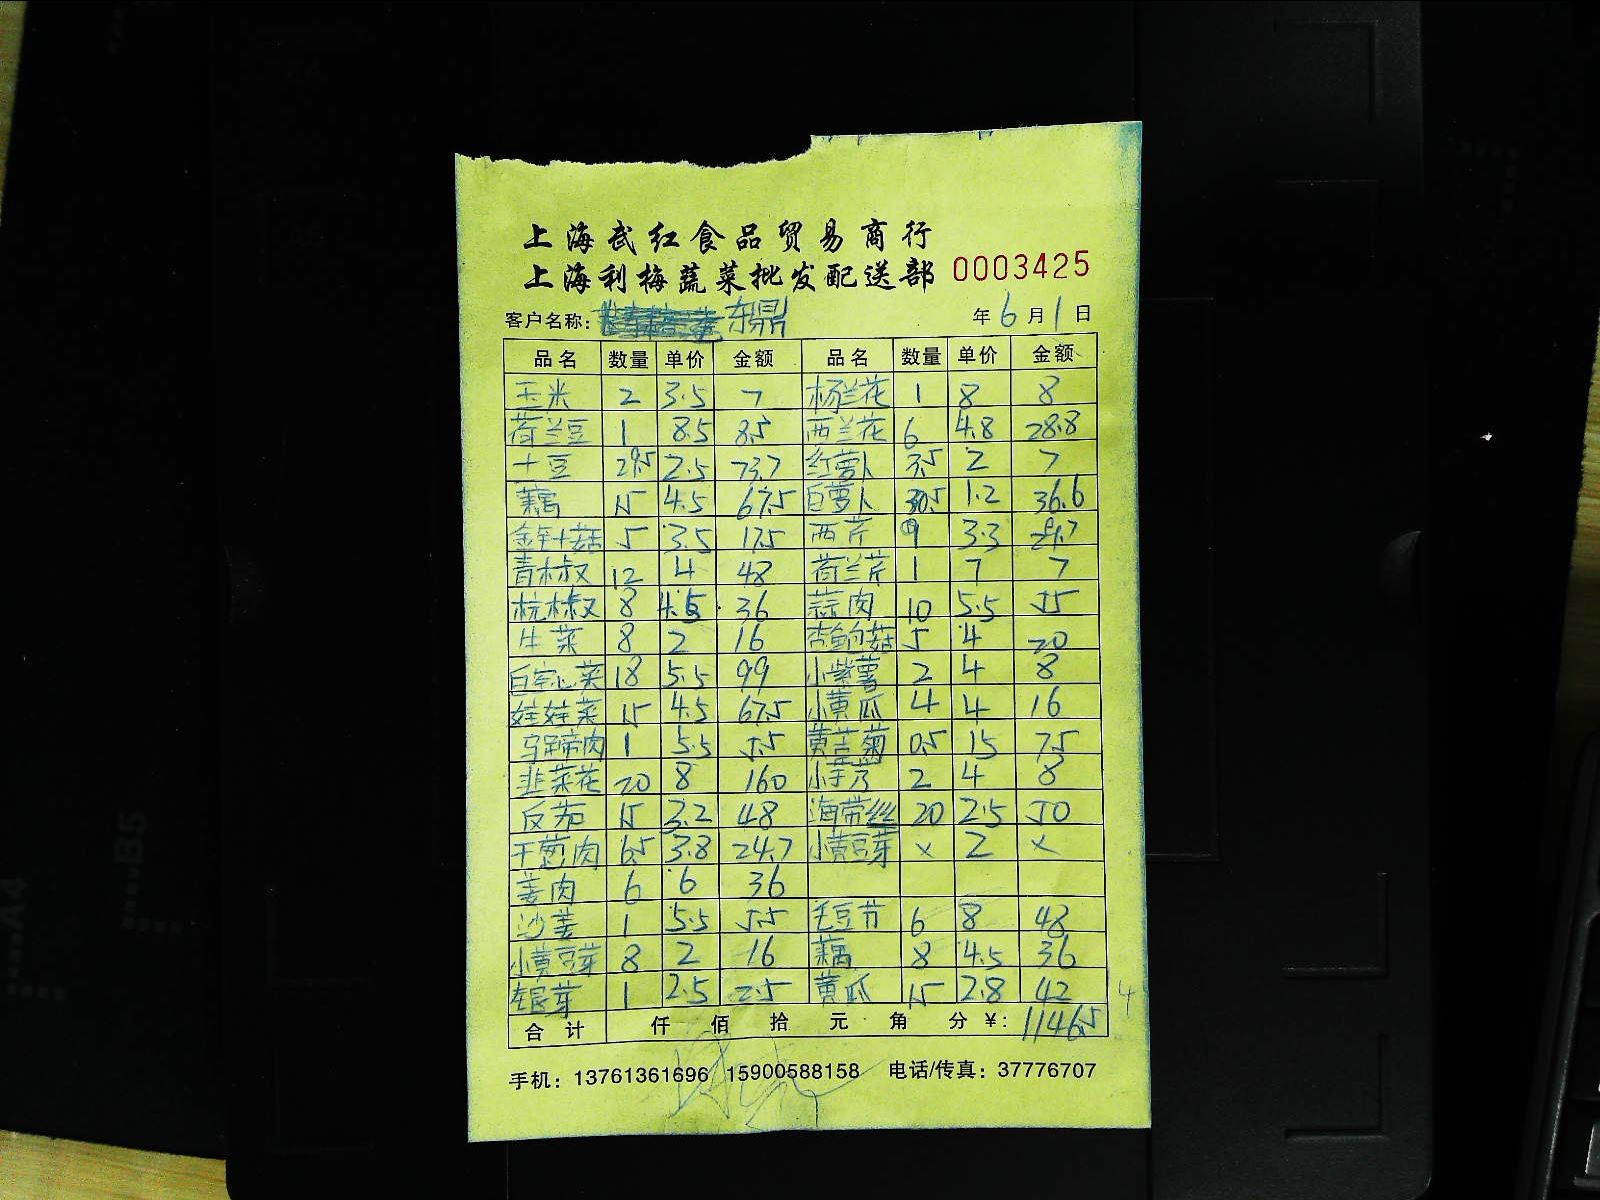 上海武红食品贸易商行
上海利梅蔬菜批发配送部 0003425
客户名称: 东鼎 年 6 月 1 日
品名 数量 单价 金额 品名 数量 单价 金额
玉米 2 3.5 7 杨兰花 1 8 8
荷兰豆 1 8.5 8.5 西兰花 6 4.8 28.8
土豆 29.5 2.5 73.7 红萝卜 3.5 2 7
藕 15 4.5 67.5 白萝卜 30.5 1.2 36.6
金针菇 5 3.5 17.5 西芹 9 3.3 29.7
青椒 12 4 48 荷兰芹 1 7 7
杭椒 8 4.5 36 蒜肉 10 5.5 55
生菜 8 2 16 杏鲍菇 5 4 20
白空心菜 18 5.5 99 小紫薯 2 4 8
娃娃菜 15 4.5 67.5 小黄瓜 4 4 16
马蹄肉 1 5.5 5.5 黄苦菊 0.5 15 7.5
韭菜花 20 8 160 小芋艿 2 4 8
反茄 15 3.2 48 海带丝 20 2.5 50
干葱肉 6.5 3.8 24.7 小黄豆芽 × 2 ×
姜肉 6 6 36
沙姜 1 5.5 5.5 毛豆节 6 8 48
小黄豆芽 8 2 16 藕 8 4.5 36
银芽 1 2.5 2.5 黄瓜 15 2.8 42
合计 仟 佰 拾 元 角 分 ¥: 1146.5
手机: 13761361696 15900588158 电话/传真: 37776707